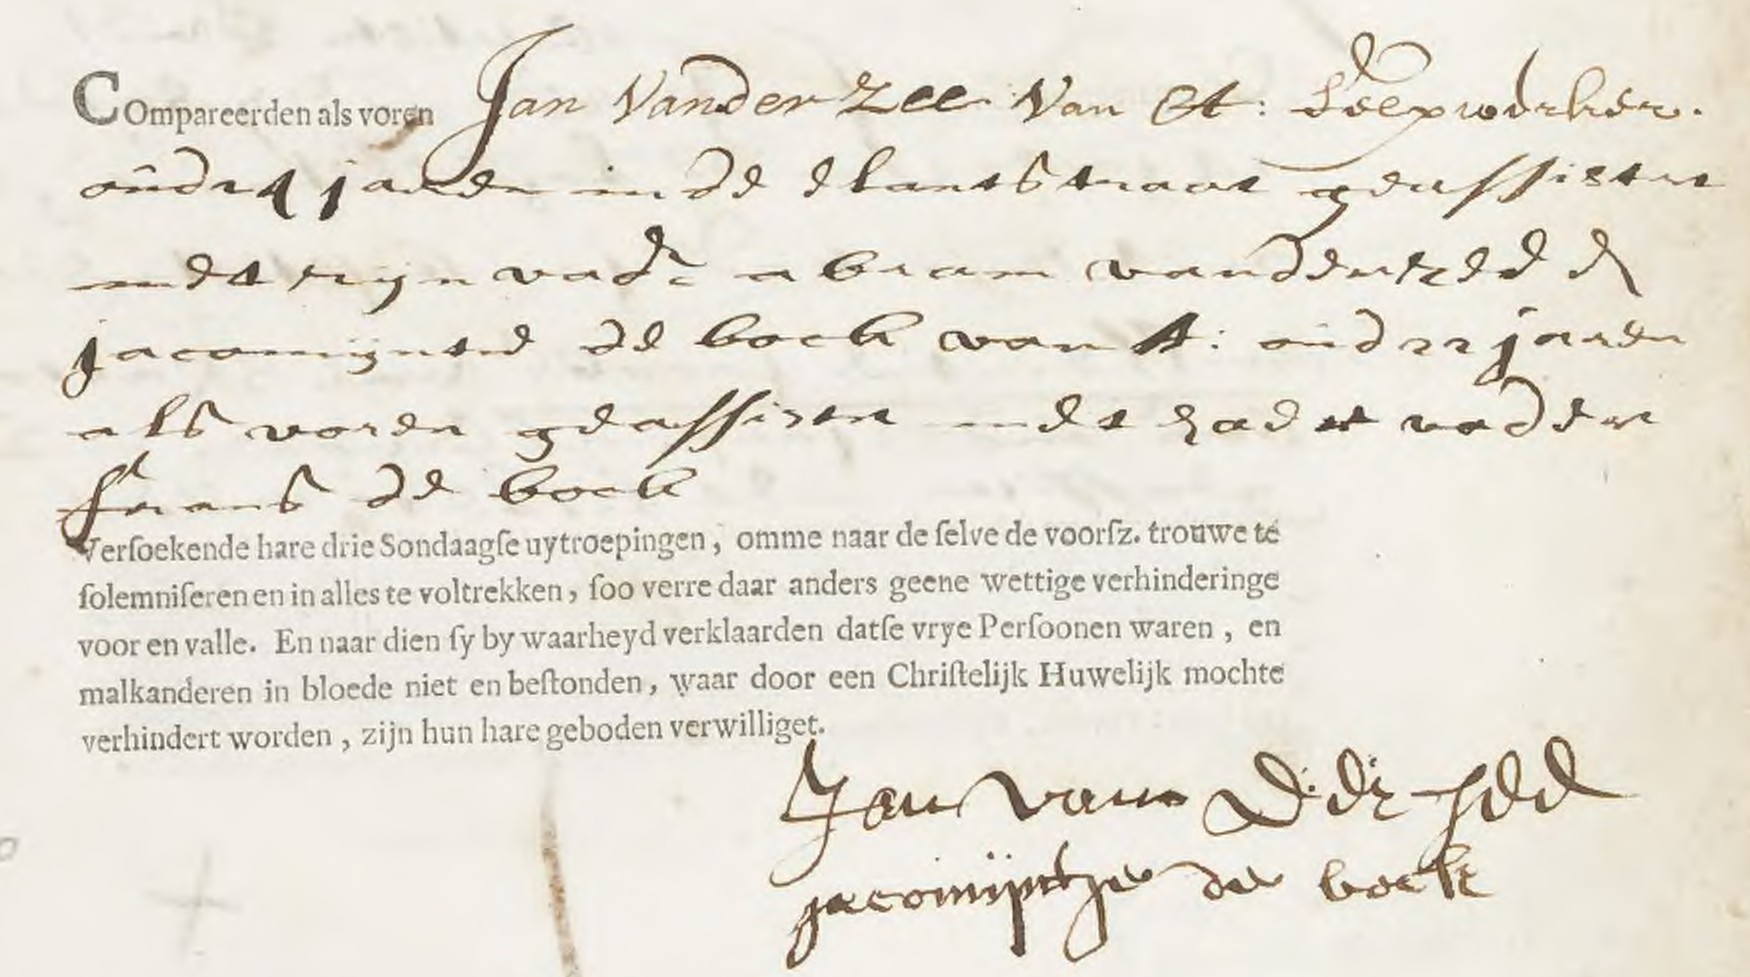 COmpareerden als voren Jan Vander Zee Van A: Seepwerker.
oud 24 jaren in de Elantstraat geassistert
met sijn vader abram vander zee &
jacomijntie de bock van A: oud 22 jaren
als voren geassistert met haer vader
frans de bock
Verſoekende hare drie Sondaagſe uytroepingen, omme naar de ſelve de voorſz. trouwe te
ſolemniſeren en in alles te voltrekken, ſoo verre daar anders geene wettige verhinderinge
voor en valle. En naar dien ſy by waarheyd verklaarden datſe vrye Perſoonen waren, en
malkanderen in bloede niet en beſtonden, waar door een Chriſtelijk Huwelijk mochte
verhindert worden, zijn hun hare geboden verwilliget.
Jan van Der Zee
jacomijntje de bock